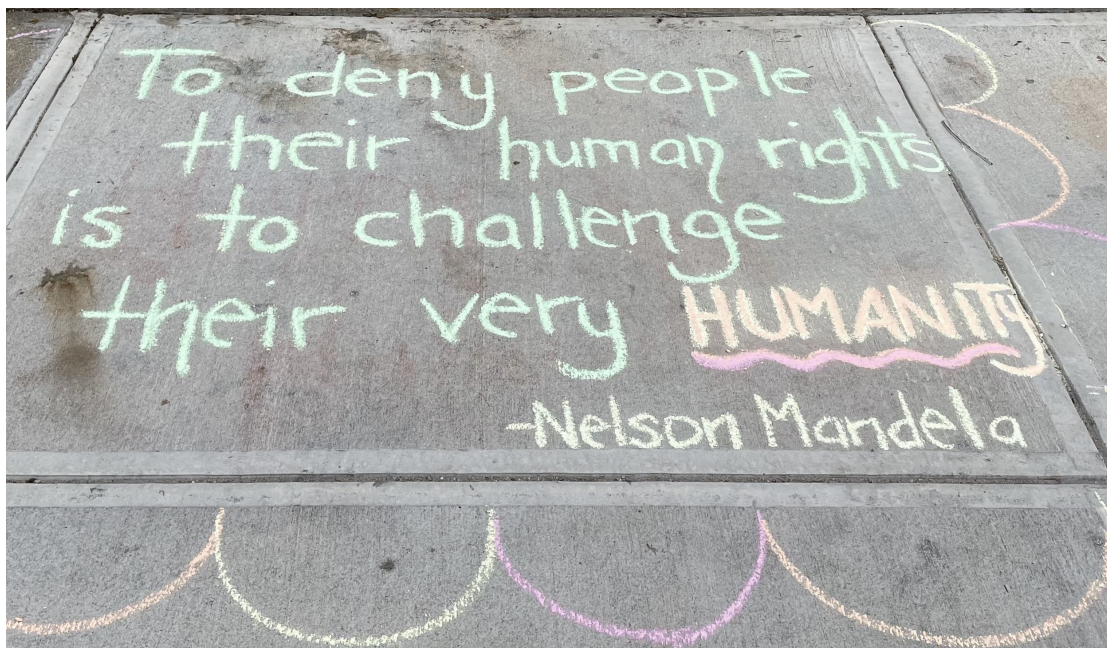 To deny people
their human rights
is to challenge
their very HUMANITy
-Nelson Mandela